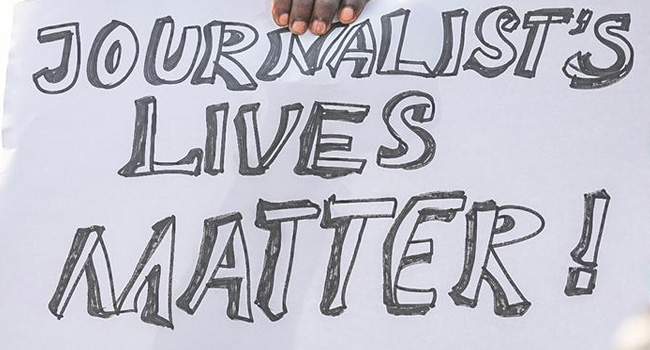 JOURNALIST'S
LIVES
MATTER!